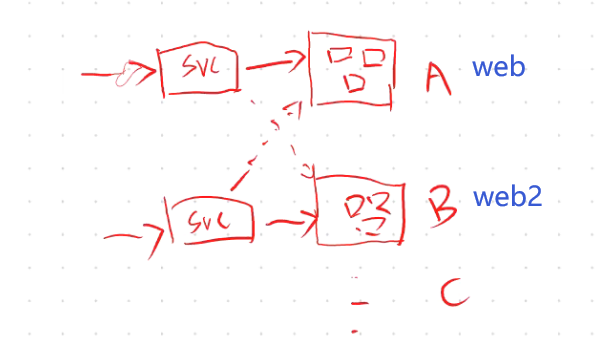 SVC
A web
SVC
B web2
C